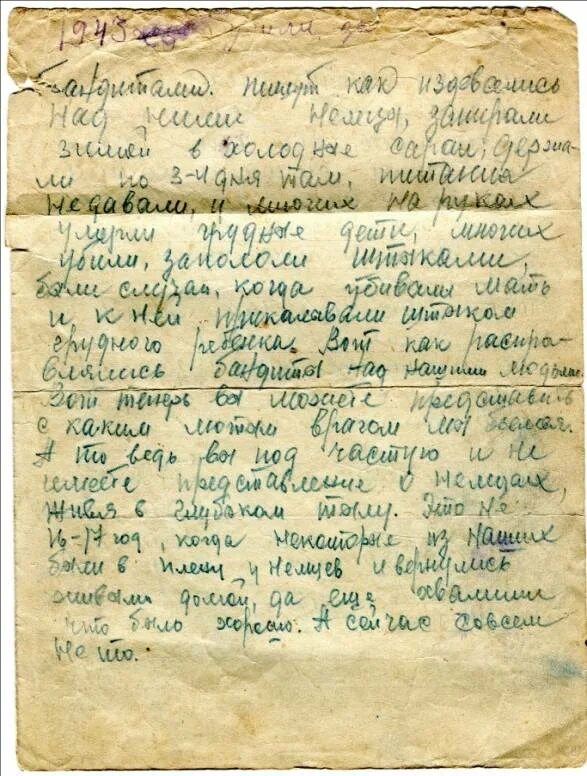 1943
бандитами. пишут как издевались
над ними немцы, запирали
зимой в холодные сараи, держа-
ли по 3-4 дня там, питания
не давали, и многих на руках
умерли грудные дети, многих
убили, закололи штыками,
были случаи, когда убивали мать
и к ней прикалавали штыком
грудного ребенка. Вот как распра-
влялись бандиты над нашими людьми.
Вот теперь вы можете представить
с каким лютым врагом мы боремся.
А то ведь вы под частую и не
имеете представление о немцах,
живя в глубоком тылу. Это не
16-17 год, когда некоторые из наших
были в плену у немцев и вернулись
живыми домой, да еще хвалили
что было хорошо. А сейчас совсем
не то.